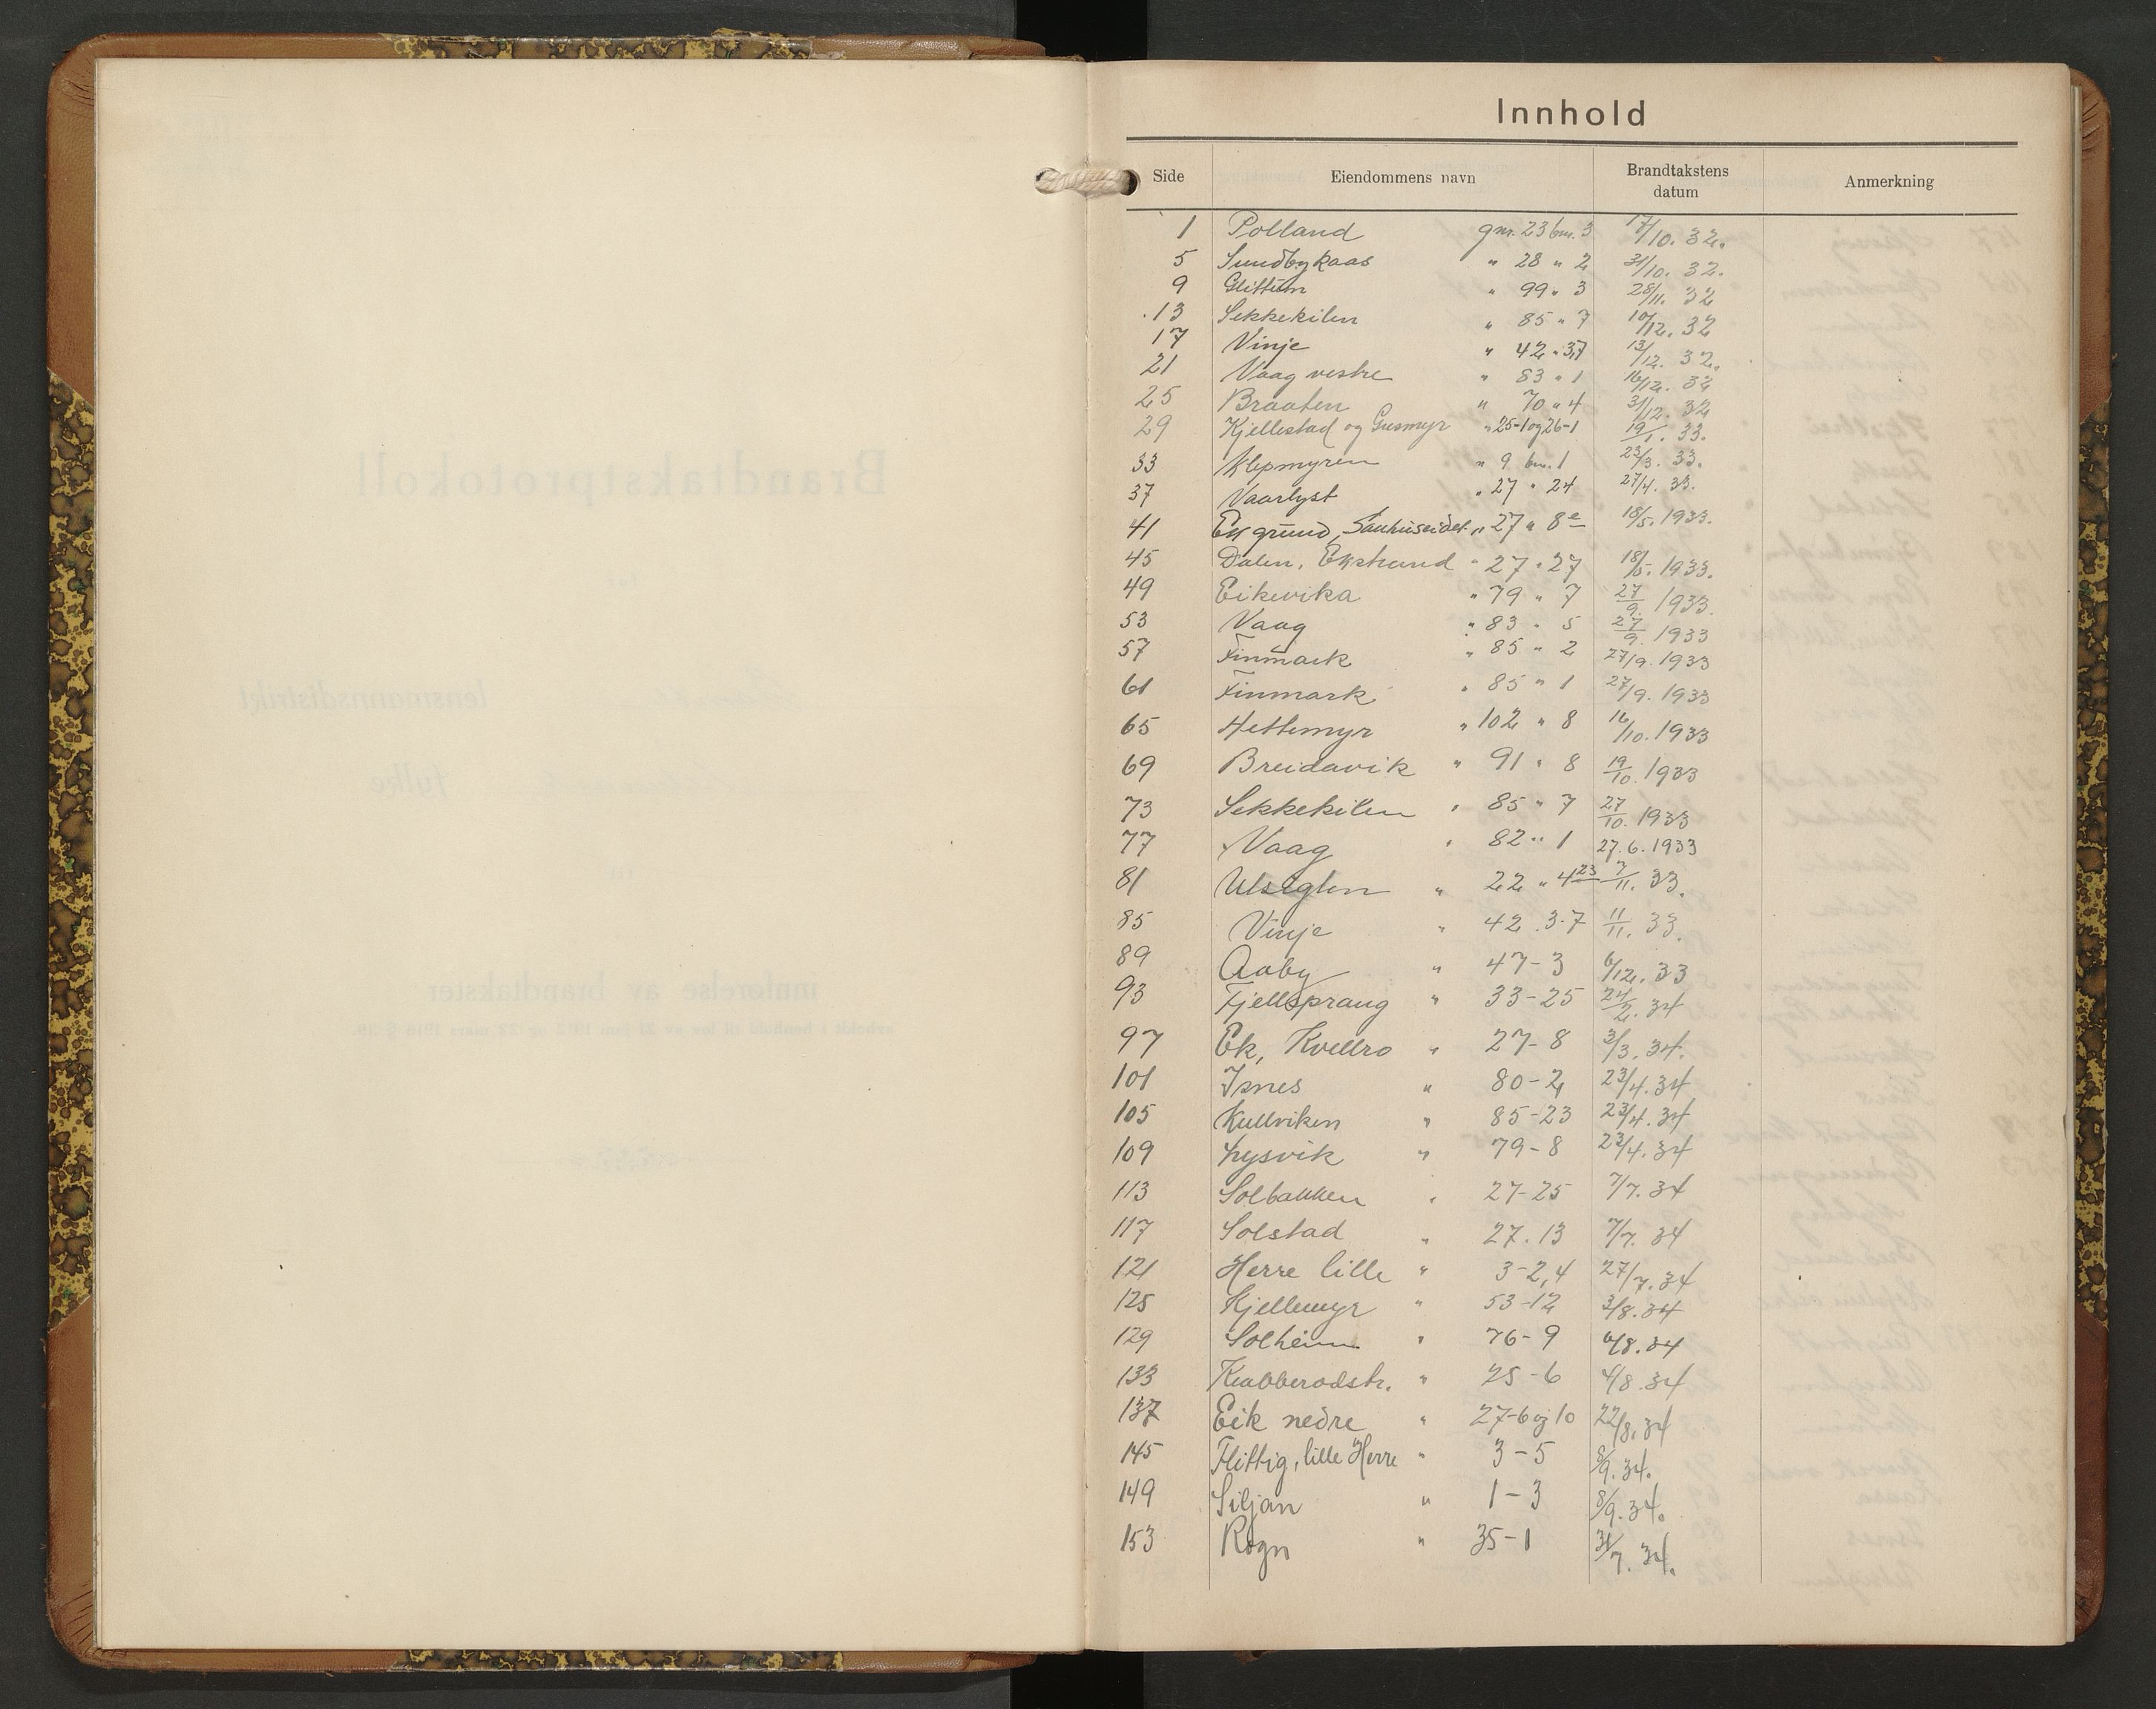 Innhold
Side Eiendommens navn Brandtakstens datum Anmerkning
1 Polland gnr. 23 bnr. 3 17/10. 32.
5 Sundbykaas " 28 " 2 31/10. 32.
9 Glittum " 99 " 3 28/11. 32
13 Sekkekilen " 85 " 7 10/12. 32
17 Vinje " 42 " 3,7 13/12. 32.
21 Vaag vestre " 83 " 1 16/12. 32
25 Braaten " 70 " 4 31/12. 32
29 Kjellestad og Gusmyr " 25-1 og 26-1 19/1. 33.
33 Klepmyren " 9 bnr. 1 23/3. 33.
37 Vaarlyst " 27 " 24 27/4. 33.
41 Ek grund, Sauhuseidet " 27 " 8e 18/5. 1933.
45 Dalen, Ekstrand " 27 " 27 18/5. 1933.
49 Eikevika " 79 " 7 27/9. 1933.
53 Vaag " 83 " 5 27/9. 1933
57 Finmark " 85 " 2 27/9. 1933
61 Finmark " 85 " 1 27/9. 1933
65 Hettemyr " 102 " 8 16/10. 1933
69 Breidavik " 91 " 8 19/10. 1933
73 Sekkekilen " 85 " 7 27/10. 1933
77 Vaag " 82 " 1 27.6.1933
81 " 22 " 4 23 7/11. 33.
85 Vinje " 42 . 3.7 11/11. 33.
89 Aaby " 47-3 6/12. 33
93 Fjellsprang " 33-25 24/2. 34
97 Ek, Kvellro " 27-8 3/3. 34.
101 Isnes " 80-2 23/4. 34
105 Kullviken " 85-23 23/4. 34
109 Lysvik " 79-8 23/4. 34
113 Solbakken " 27-25 7/7. 34
117 Solstad " 27.13 7/7. 34
121 Herre lille " 3-2,4 27/7. 34
125 Kjellemyr " 53-12 3/8. 34
129 Solheim " 76-9 6/8. 34
133 Krabberødstr. " 25-6 4/8. 34
137 Eik nedre " 27-6 og 10 22/8. 34
145 Flittig, lille Herre " 3-5 8/9. 34.
149 Siljan " 1-3 8/9. 34.
153 Rogn " 35-1 31/7. 34.